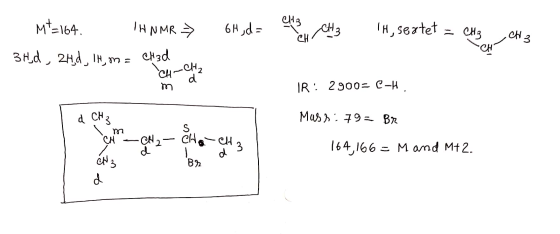 M⁺=164. ¹H NMR ⇒ 6H,d = CH₃ CH CH₃ 1H, sextet = CH₃ CH CH₃
3H,d , 2H,d , 1H,m = CH₃d CH m CH₂ d
IR: 2900 = C-H.
Mass: 79 = Br
164,166 = M and M+2.
d CH₃
CH m — CH₂ d — CH S — CH₃ d
CH₃ d Br